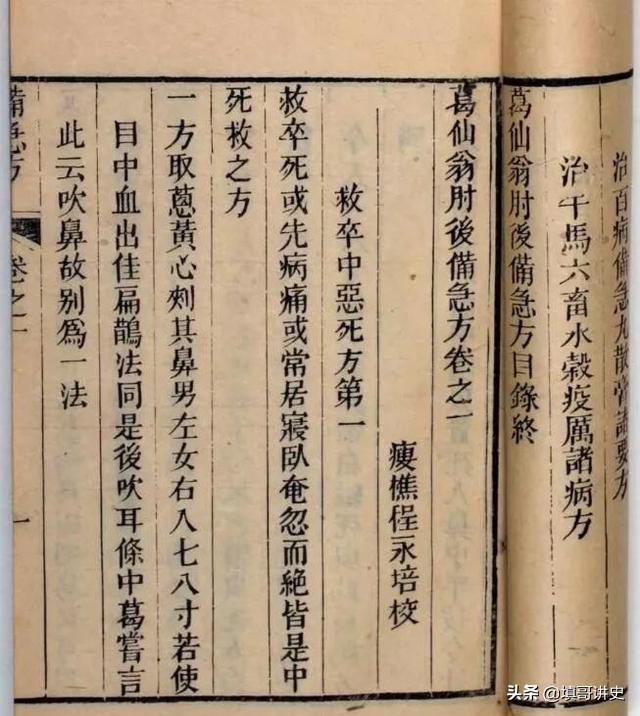 治百病備急丸散膏諸要方
治牛馬六畜水穀疫厲諸病方
葛仙翁肘後備急方目錄終
葛仙翁肘後備急方卷之一
瘦樵程永培校
救卒中惡死方第一
救卒死或先病痛或常居寢臥奄忽而絕皆是中
死救之方
一方取蔥黃心刺其鼻男左女右入七八寸若使
目中血出佳扁鵲法同是後吹耳條中葛嘗言
此云吹鼻故別爲一法
備急方
卷之一
一
头条 @填哥讲史